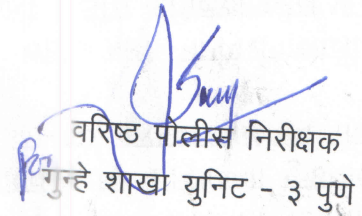 वरिष्ठ पोलीस निरीक्षक
गुन्हे शाखा युनिट - ३ पुणे